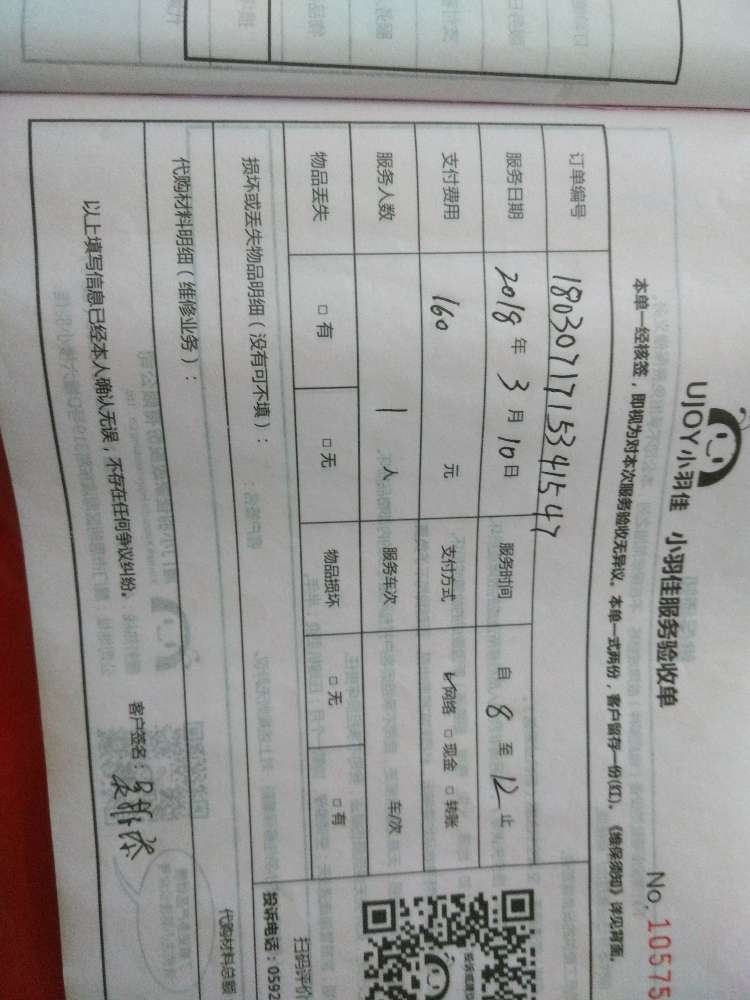 UJOY小羽佳 小羽佳服务验收单
No. 10575
本单一经核签，即视为对本次服务验收无异议。本单一式两份，客户留存一份(红)。《维保须知》详见背面。
订单编号 180307171533415 47
服务日期 2018 年 3 月 10 日 服务时间 自 8 至 12 止
支付费用 160 元 支付方式 ☑网络 □现金 □转账
服务人数 1 人 服务车次 车/次
物品丢失 □有 □无 物品损坏 □无 □有
损坏或丢失物品明细（没有可不填）：
扫码评价
投诉电话：0592
代购材料明细（维修业务）：
代购材料总额
以上填写信息已经本人确认无误，不存在任何争议纠纷。
客户签名：